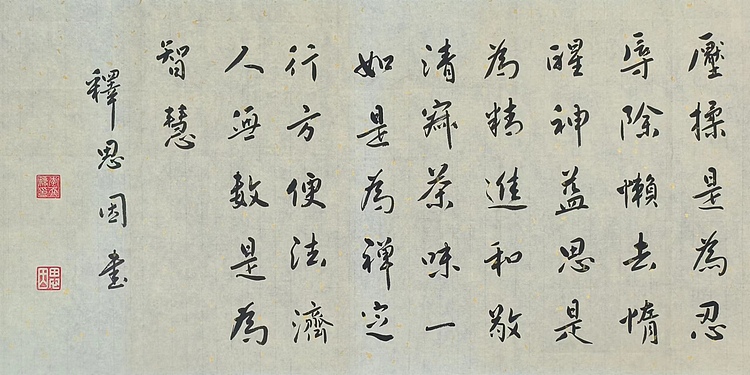 壓揉是為忍
辱除懶去惰
醒神益思是
為精進和敬
清寂茶味一
如是為禪定
行方便法濟
人無數是為
智慧
釋思國書